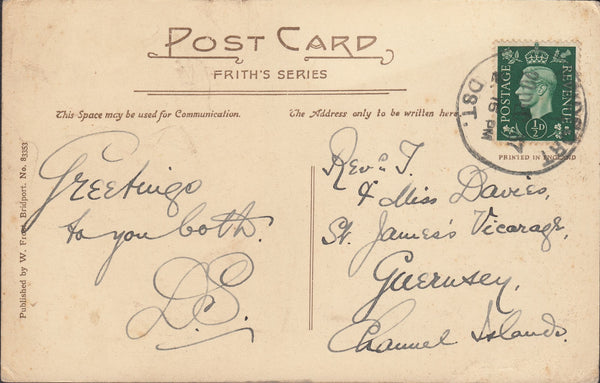 POST CARD
FRITH'S SERIES
This Space may be used for Communication.
The Address only to be written here
Greetings
to you both.
D.S.
Revd. T.
& Miss Davies,
St. James's Vicarage,
Guernsey,
Channel Islands.
POSTAGE
REVENUE
½D
BRIDPORT
DST.
PM
PRINTED IN ENGLAND
Published by W. Frost, Bridport, No. 83353